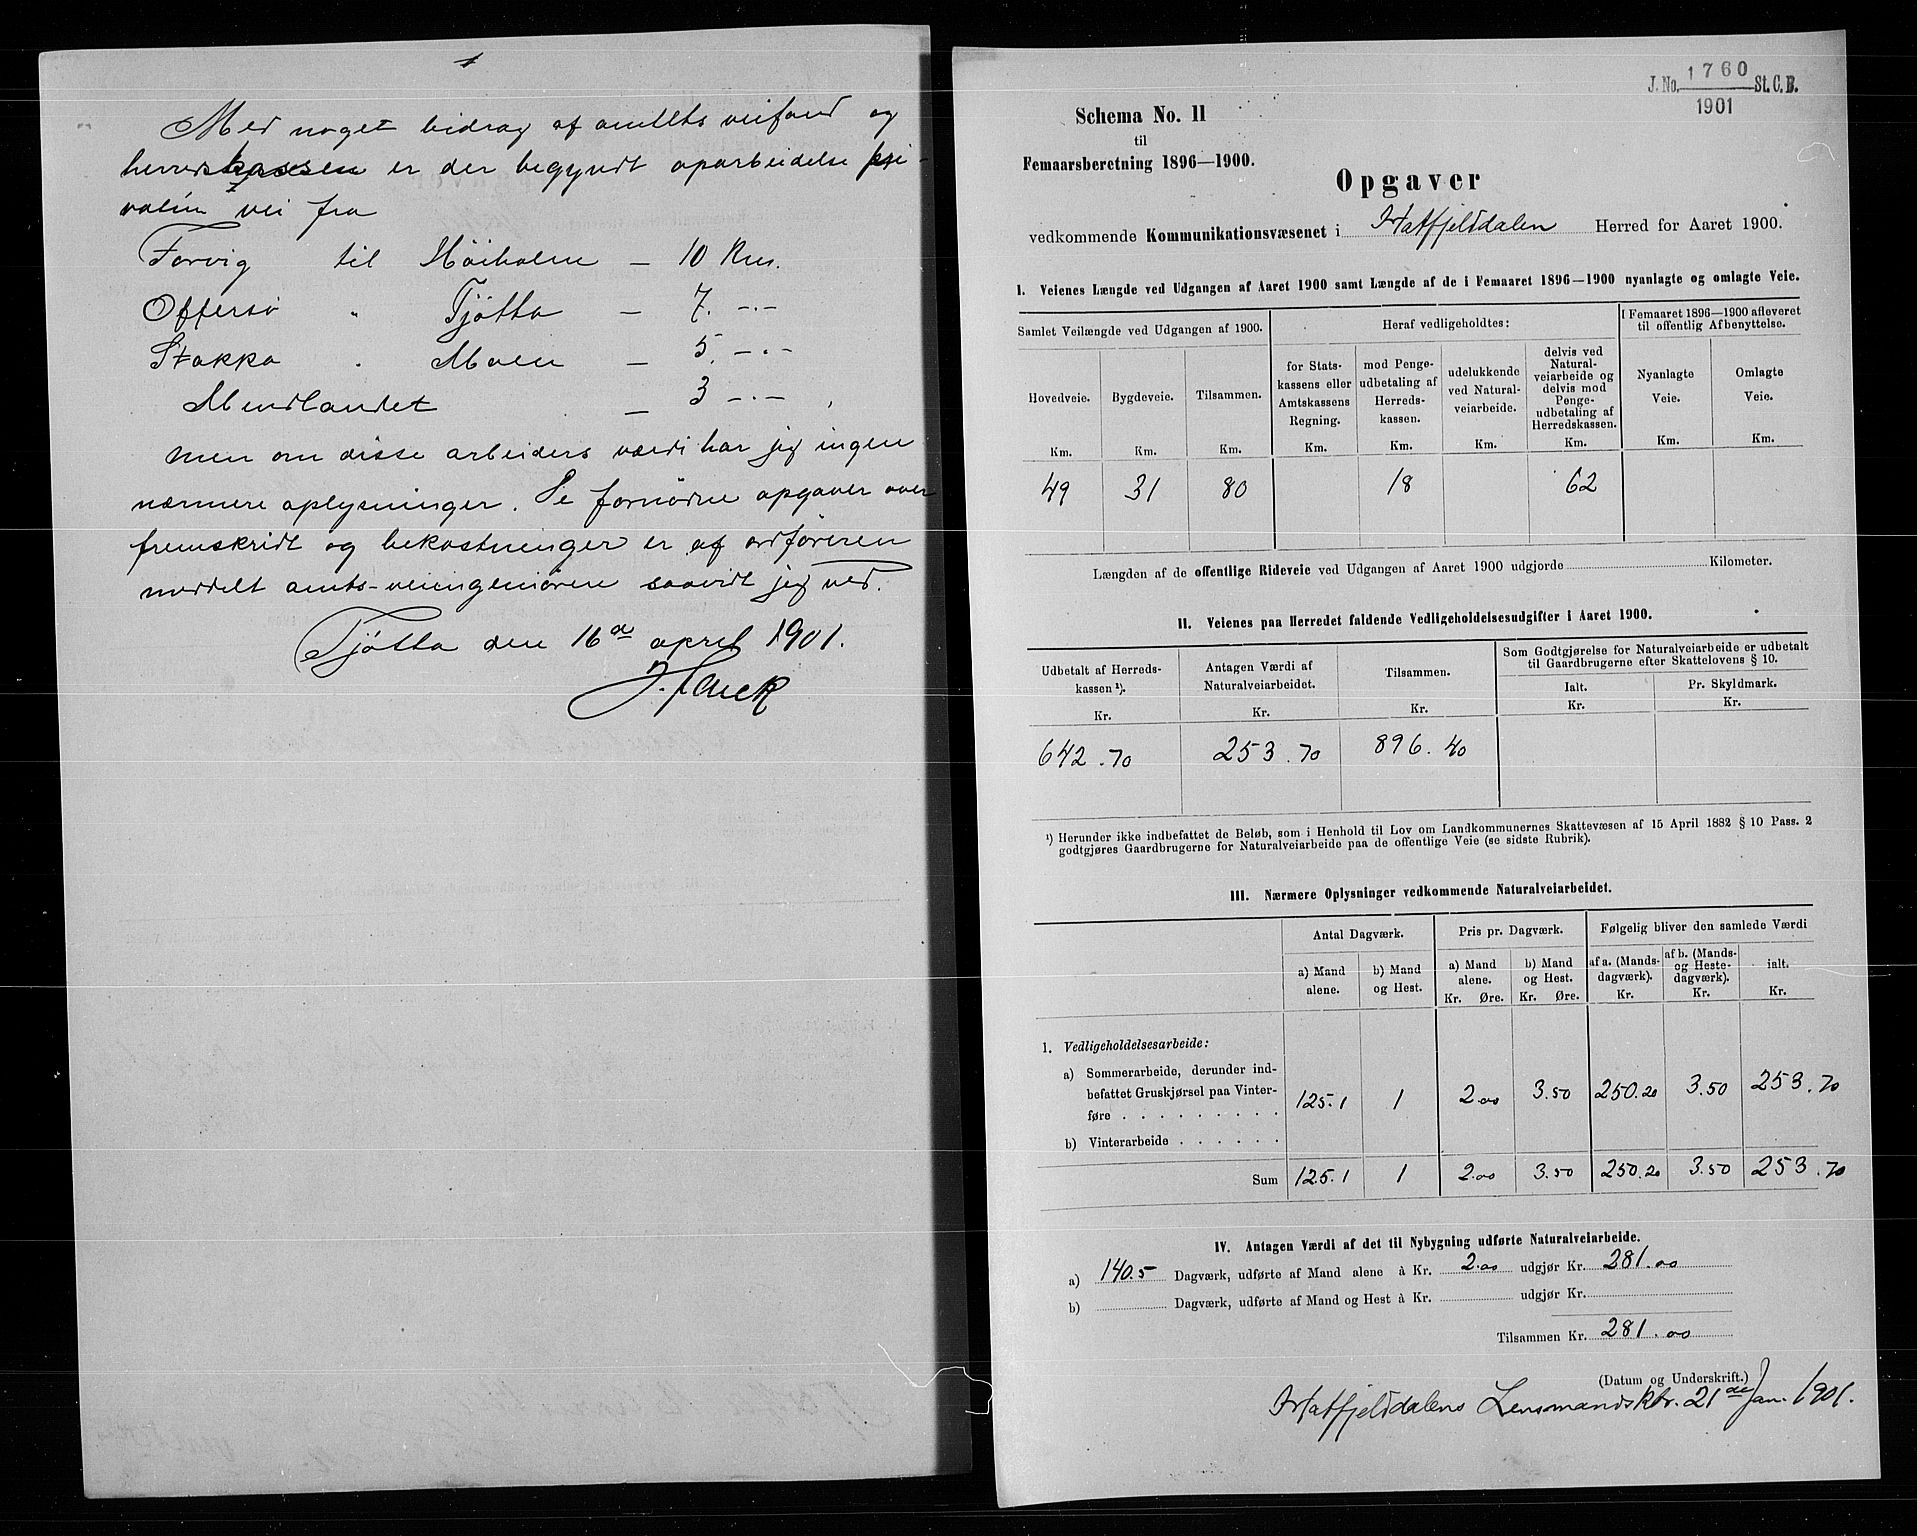 Med noget bidrag af amtets veifond og
herredskassen er der begyndt oparbeidelse pri-
vatim vei fra
Forvig til Høiholm — 10 Km.
Offersø " Tjøtta — 7. —·—
Stokka " Moen — 5. —·—
Mindlandet — 3 —·— ,
men om disse arbeiders værdi har jeg ingen
nærmere oplysninger. De fornødne opgaver over
fremskridt og bekostninger er af ordføreren
meddelt amts-veiingeniøren saavidt jeg ved.
Tjøtta den 16de april 1901.
J. No. 1760 St. C. B.
1901
Schema No. 11
til
Femaarsberetning 1896—1900.
Opgaver
vedkommende Kommunikationsvæsenet i Hatfjelddalen Herred for Aaret 1900.
I. Veienes Længde ved Udgangen af Aaret 1900 samt Længde af de i Femaaret 1896—1900 nyanlagte og omlagte Veie.
Samlet Veilængde ved Udgangen af 1900.
Hovedveie. Bygdeveie. Tilsammen.
Km. Km. Km.
Heraf vedligeholdtes:
for Stats-
kassens eller
Amtskassens
Regning.
Km.
mod Penge-
udbetaling af
Herreds-
kassen.
Km.
udelukkende
ved Natural-
veiarbeide.
Km.
delvis ved
Natural-
veiarbeide og
delvis mod
Penge-
udbetaling af
Herredskassen.
Km.
I Femaaret 1896—1900 afleveret
til offentlig Afbenyttelse.
Nyanlagte
Veie.
Km.
Omlagte
Veie.
Km.
49 31 80 18 62
Længden af de offentlige Rideveie ved Udgangen af Aaret 1900 udgjorde Kilometer.
II. Veienes paa Herredet faldende Vedligeholdelsesudgifter i Aaret 1900.
Udbetalt af Herreds-
kassen ¹).
Kr.
Antagen Værdi af
Naturalveiarbeidet.
Kr.
Tilsammen.
Kr.
Som Godtgjørelse for Naturalveiarbeide er udbetalt
til Gaardbrugerne efter Skattelovens § 10.
Ialt.
Kr.
Pr. Skyldmark.
Kr.
642.70 253.70 896.40
¹) Herunder ikke indbefattet de Beløb, som i Henhold til Lov om Landkommunernes Skattevæsen af 15 April 1882 § 10 Pass. 2
godtgjøres Gaardbrugerne for Naturalveiarbeide paa de offentlige Veie (se sidste Rubrik).
III. Nærmere Oplysninger vedkommende Naturalveiarbeidet.
Antal Dagværk.
a) Mand
alene.
b) Mand
og Hest.
Pris pr. Dagværk.
a) Mand
alene.
Kr. Øre.
b) Mand
og Hest.
Kr. Øre.
Følgelig bliver den samlede Værdi
af a. (Mands-
dagværk).
Kr.
af b. (Mands-
og Heste-
dagværk).
Kr.
ialt.
Kr.
1. Vedligeholdelsesarbeide:
a) Sommerarbeide, derunder ind-
befattet Gruskjørsel paa Vinter-
føre . . . . . . . . . 125.1 1 2.00 3.50 250.20 3.50 253.70
b) Vinterarbeide . . . . . .
Sum 125.1 1 2.00 3.50 250.20 3.50 253.70
IV. Antagen Værdi af det til Nybygning udførte Naturalveiarbeide.
a) 140.5 Dagværk, udførte af Mand alene à Kr. 2.00 udgjør Kr. 281.00
b) Dagværk, udførte af Mand og Hest à Kr. udgjør Kr.
Tilsammen Kr. 281.00
(Datum og Underskrift.)
Hatfjelddalens Lensmandsktr. 21de Jan. 1901.